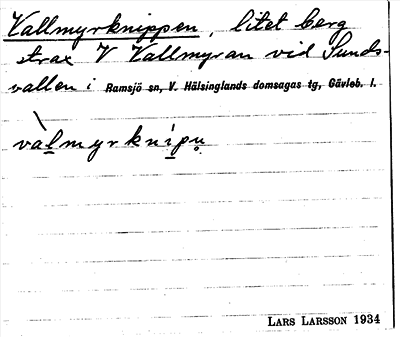 Vallmyrknippen, litet berg
strax V Vallmyran vid Sunds-
vallen i Ramsjö sn, V. Hälsinglands domsagas tg, Gävleb. l.
vàl̲myrkni̲pu̥
LARS LARSSON 1934